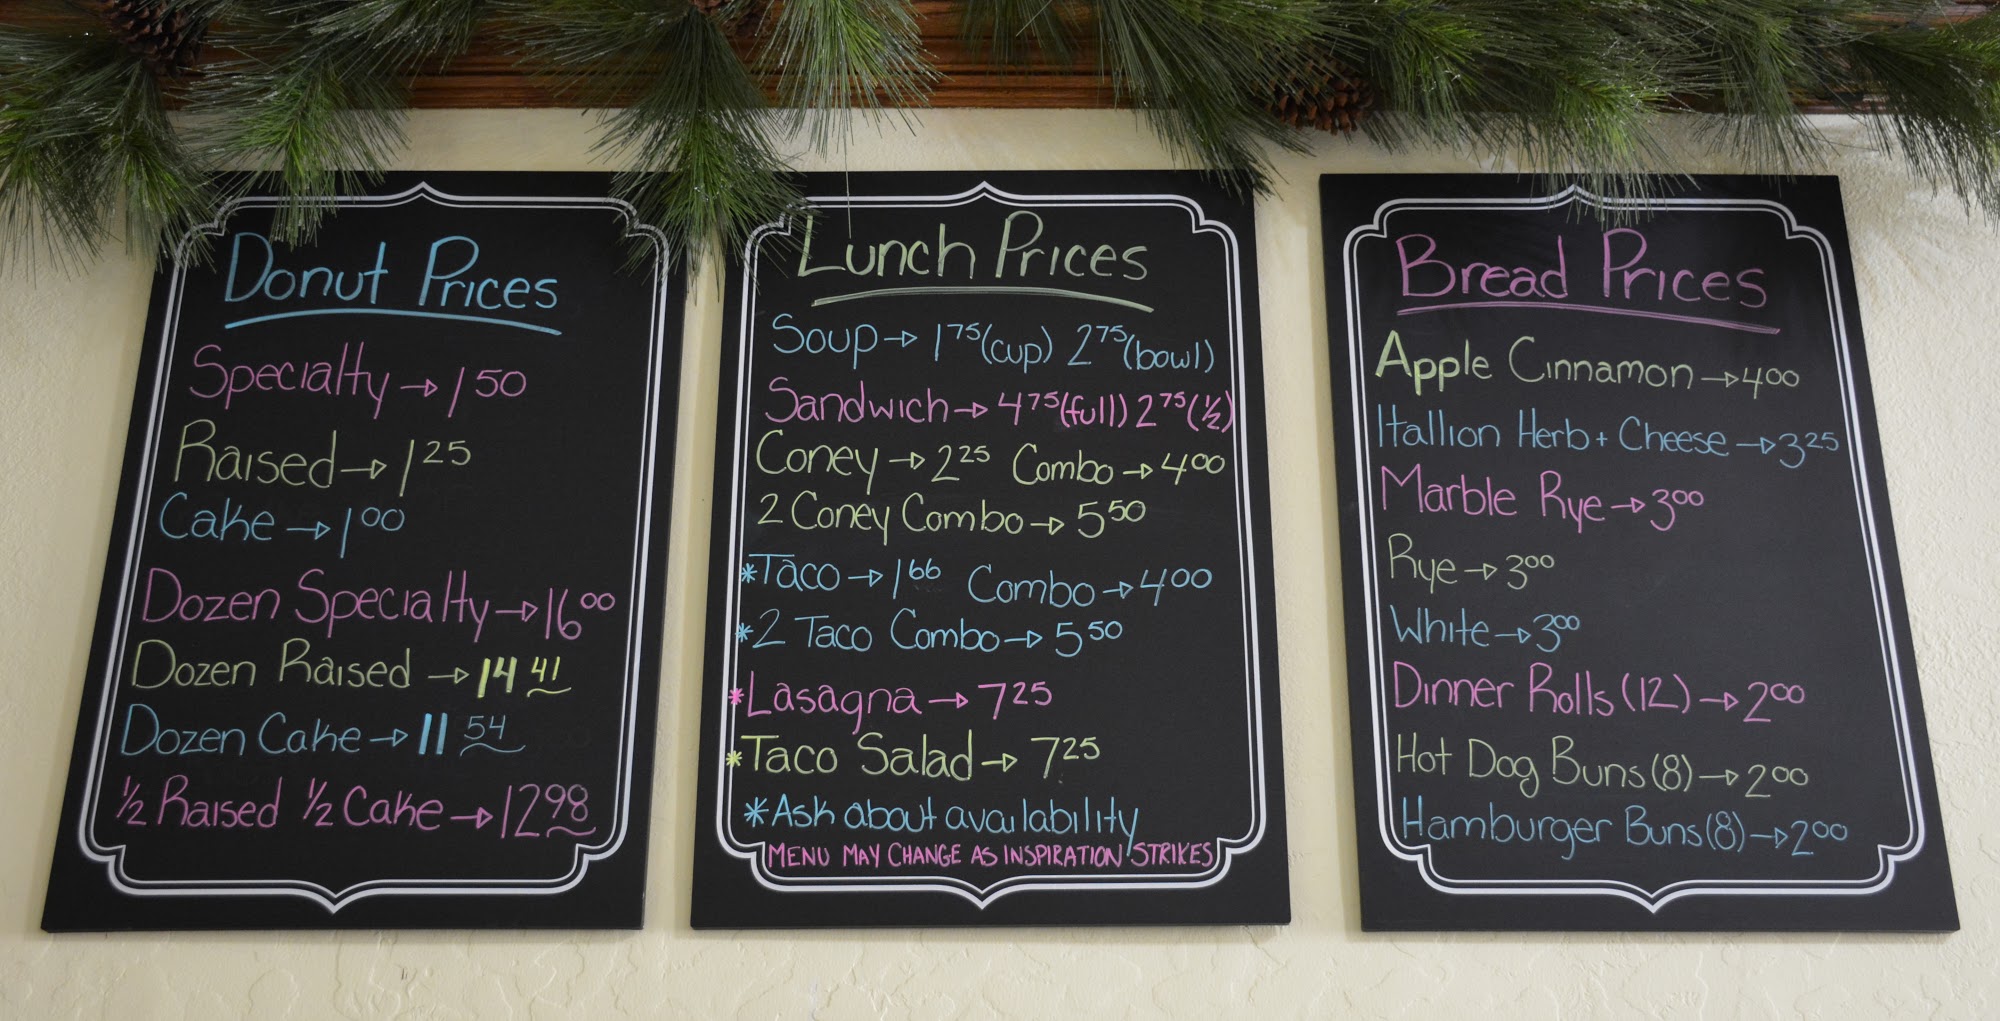 Donut Prices
Specialty → 1 50
Raised → 1 25
Cake → 1 00
Dozen Specialty → 16 00
Dozen Raised → 14 41
Dozen Cake → 11 54
1/2 Raised 1/2 Cake → 12 98
Lunch Prices
Soup → 1 75 (cup) 2 75 (bowl)
Sandwich → 4 75 (full) 2 75 (1/2)
Coney → 2 25 Combo → 4 00
2 Coney Combo → 5 50
*Taco → 1 66 Combo → 4 00
*2 Taco Combo → 5 50
*Lasagna → 7 25
*Taco Salad → 7 25
*Ask about availability
MENU MAY CHANGE AS INSPIRATION STRIKES
Bread Prices
Apple Cinnamon → 4 00
Itallion Herb + Cheese → 3 25
Marble Rye → 3 00
Rye → 3 00
White → 3 00
Dinner Rolls (12) → 2 00
Hot Dog Buns (8) → 2 00
Hamburger Buns (8) → 2 00